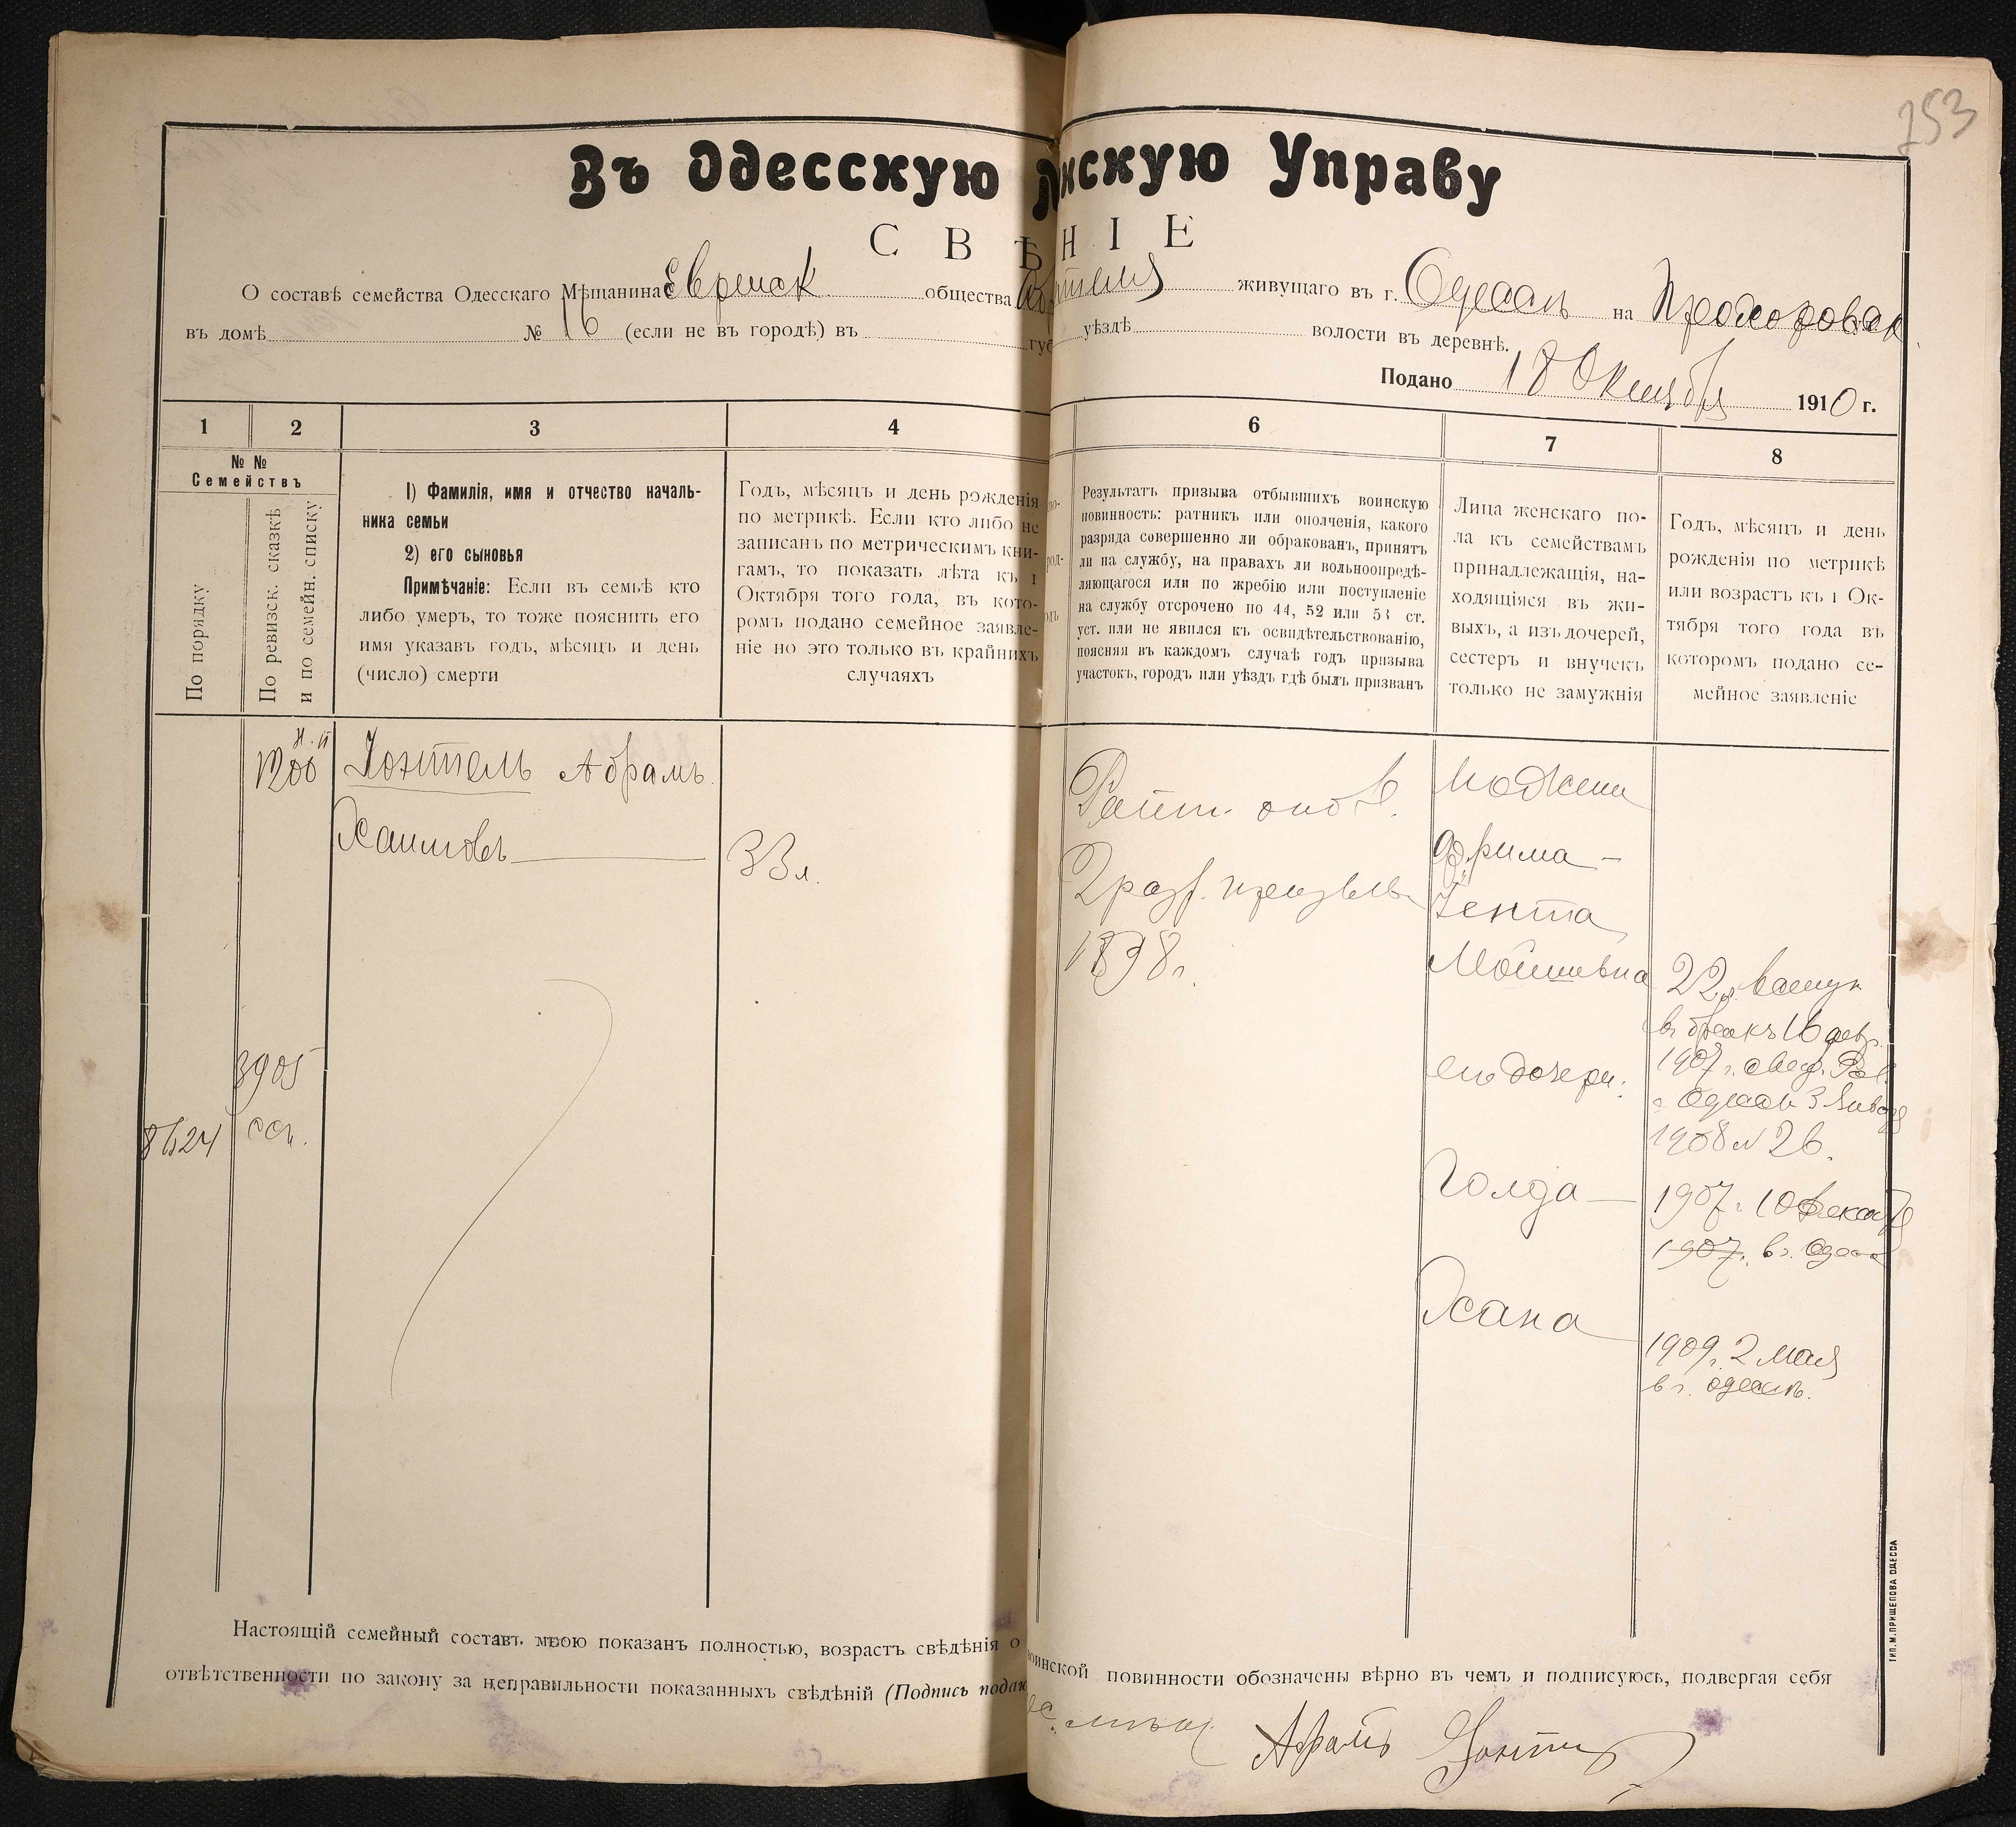 253
Въ Одесскую нскую Управу
С В Ѣ Н І Е
О составѣ семейства Одесскаго Мѣщанина Евреиск общества живущаго въ г. Одессѣ на Прохоровск
въ домѣ № 16 (если не въ городѣ) въ губ уѣздѣ волости въ деревнѣ.
Подано 18 Октября 1910 г.
1 2 3 4 6 7 8
№ №
Семействъ
По порядку
По ревизск. сказкѣ
и по семейн. списку
1) Фамилія, имя и отчество началь-
ника семьи
2) его сыновья
Примѣчаніе: Если въ семьѣ кто
либо умеръ, то тоже пояснить его
имя указавъ годъ, мѣсяцъ и день
(число) смерти
Годъ, мѣсяцъ и день рожденія
по метрикѣ. Если кто либо не
записанъ по метрическимъ кни-
гамъ, то показать лѣта къ 1
Октября того года, въ кото-
ромъ подано семейное заявле-
ніе но это только въ крайнихъ
случаяхъ
Результатъ призыва отбывшихъ воинскую
повинность: ратникъ или ополченія, какого
разряда совершенно ли обракованъ, принятъ
ли на службу, на правахъ ли вольноопредѣ-
ляющагося или по жребію или поступленіе
на службу отсрочено по 44, 52 или 53 ст.
уст. или не явился къ освидѣтельствованію,
поясняя въ каждомъ случаѣ годъ призыва
участокъ, городъ или уѣздъ гдѣ былъ призванъ
Лица женскаго по-
ла къ семействамъ
принадлежащія, на-
ходящіяся въ жи-
выхъ, а изъ дочерей,
сестеръ и внучекъ
только не замужнія
Годъ, мѣсяцъ и день
рожденія по метрикѣ
или возрастъ къ 1 Ок-
тября того года въ
которомъ подано се-
мейное заявленіе
1200
Абрамъ
Хаимовъ
33 л.
3905
8624
Ратн. опол.
2 разр. призыва
1898 г.
Фрима -
Гента
Мошковна
его дочери:
Голда
Хана
22 л.
в бракъ 16 февр.
1907 г.
Одессѣ 3 Января
1908 № 26.
1907 г. 10 Декабря
1907 г. в г. Одессѣ
1909 г. 2 мая
в г. Одессѣ.
Настоящій семейный составъ мною показанъ полностью, возрастъ свѣдѣнія о воинской повинности обозначены вѣрно въ чемъ и подписуюсь, подвергая себя
отвѣтственности по закону за неправильности показанныхъ свѣдѣній (Подпись подаю
Абрамъ
ТИП. М. ПРИЩЕПОВА ОДЕССА